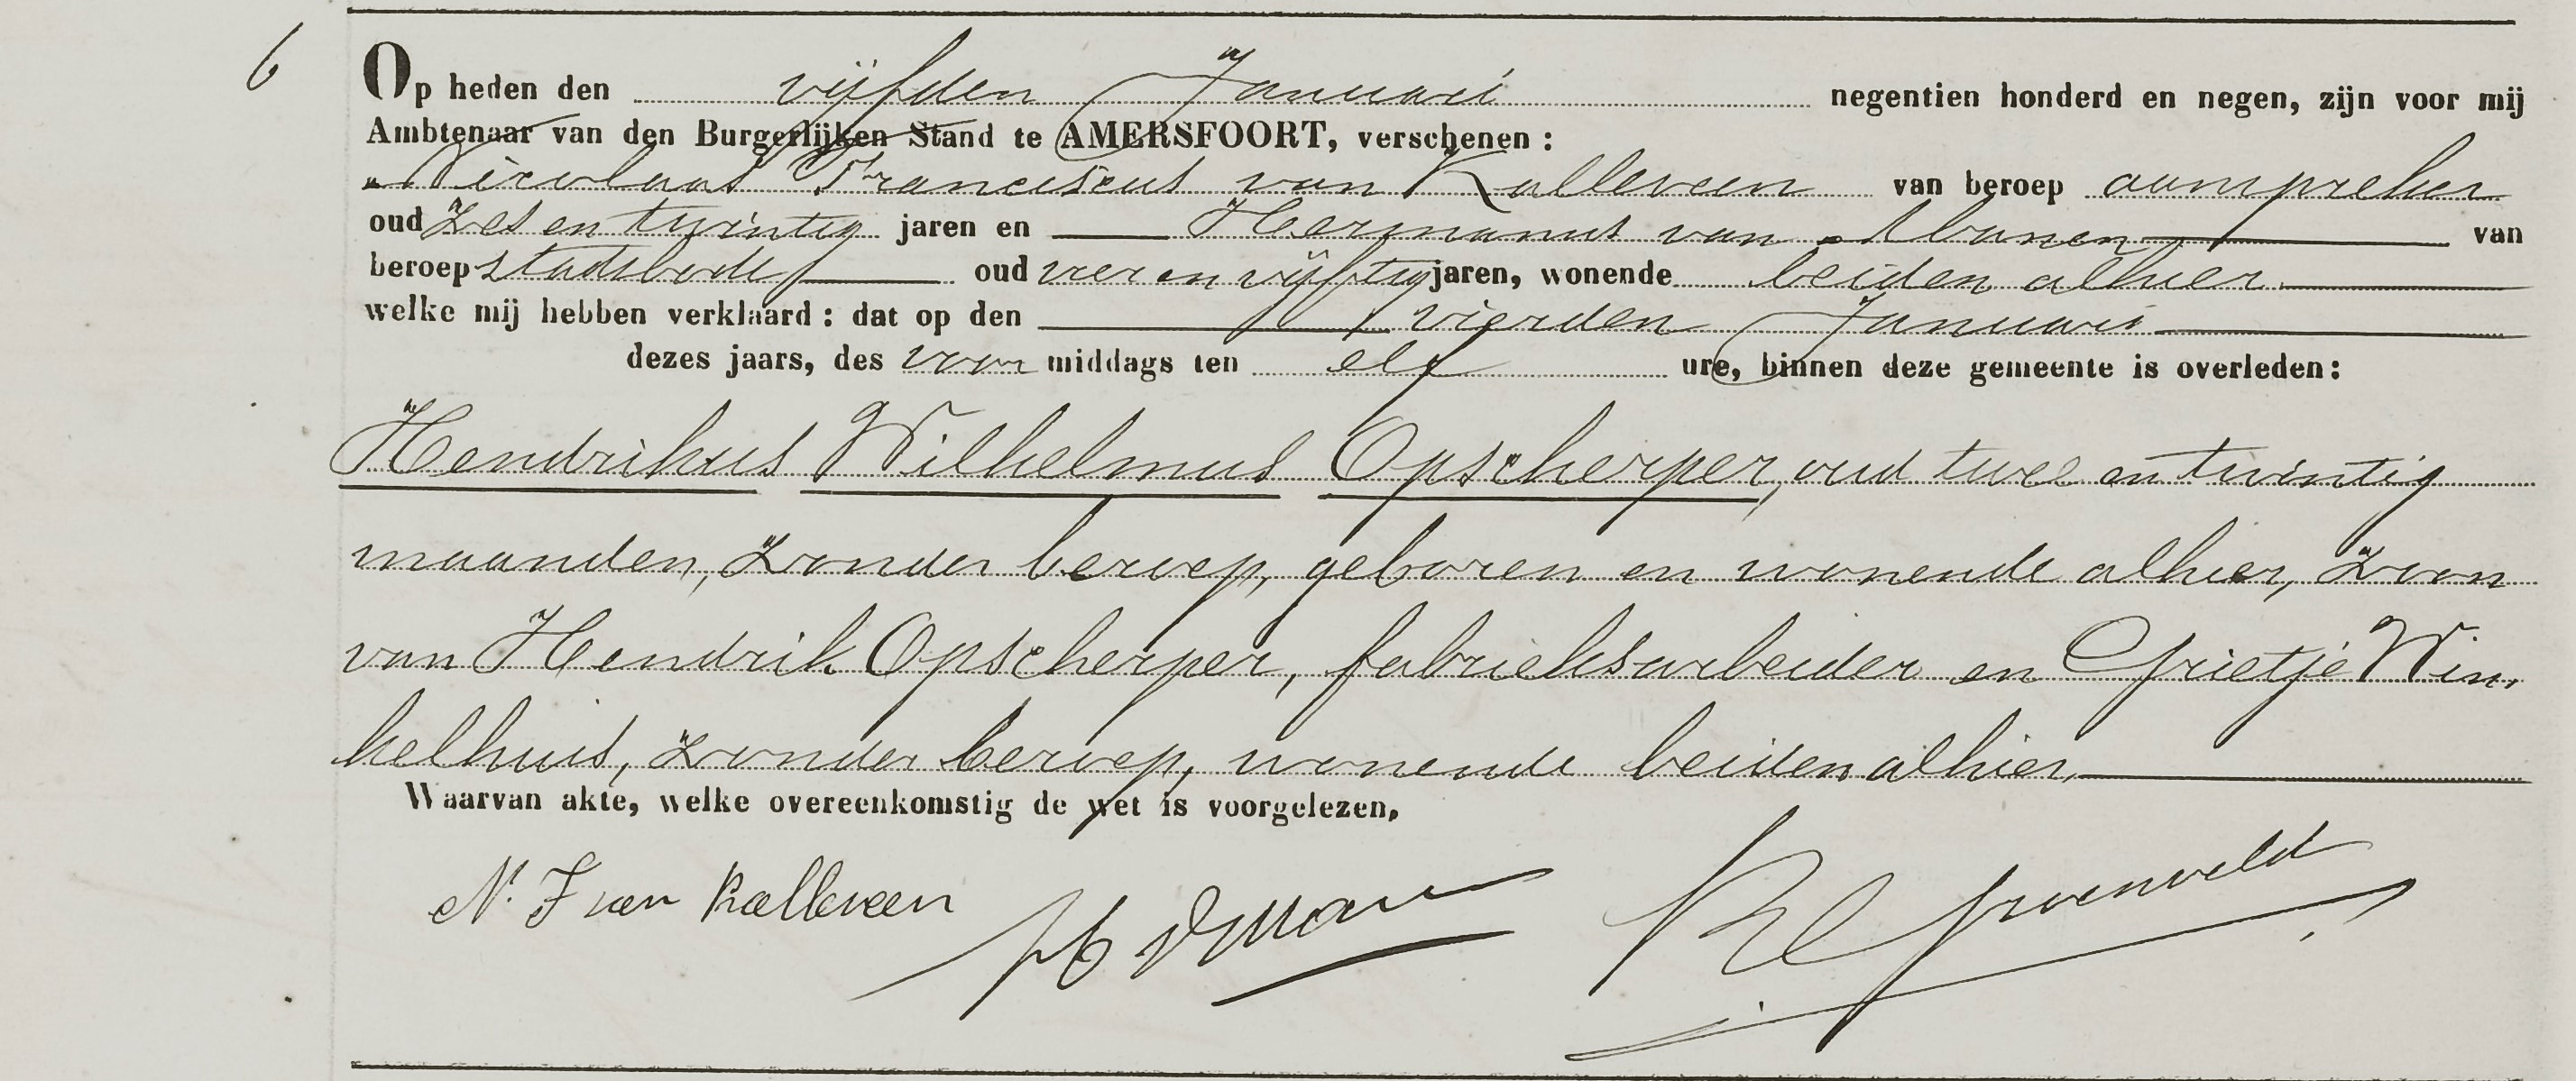 6
Op heden den vijfden Januari negentien honderd en negen, zijn voor mij
Ambtenaar van den Burgerlijken Stand te AMERSFOORT, verschenen :
Nicolaas Franciscus van Kalleveen van beroep aanspreker
oud zes en twintig jaren en Hermanus van
van
beroep stadsbode oud vier en vijftig jaren, wonende beiden alhier
welke mij hebben verklaard : dat op den vierden Januari
dezes jaars, des voor middags ten elf ure, binnen deze gemeente is overleden:
Hendrikus Wilhelmus Opscherper, oud twee en twintig
maanden, zonder beroep, geboren en wonende alhier, zoon
van Hendrik Opscherper, fabrieksarbeider en Grietje Win,
kelhuis, zonder beroep, wonende beiden alhier.
Waarvan akte, welke overeenkomstig de wet is voorgelezen.
N. F van Kalleveen
Groenveld